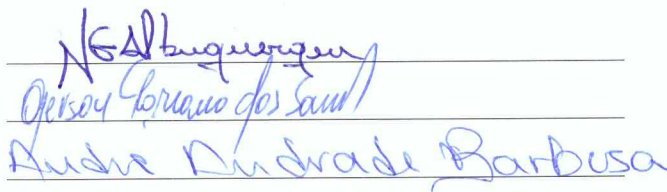 NGAlbuquerque
Gerson Floriano dos Sant
André Andrade Barbosa